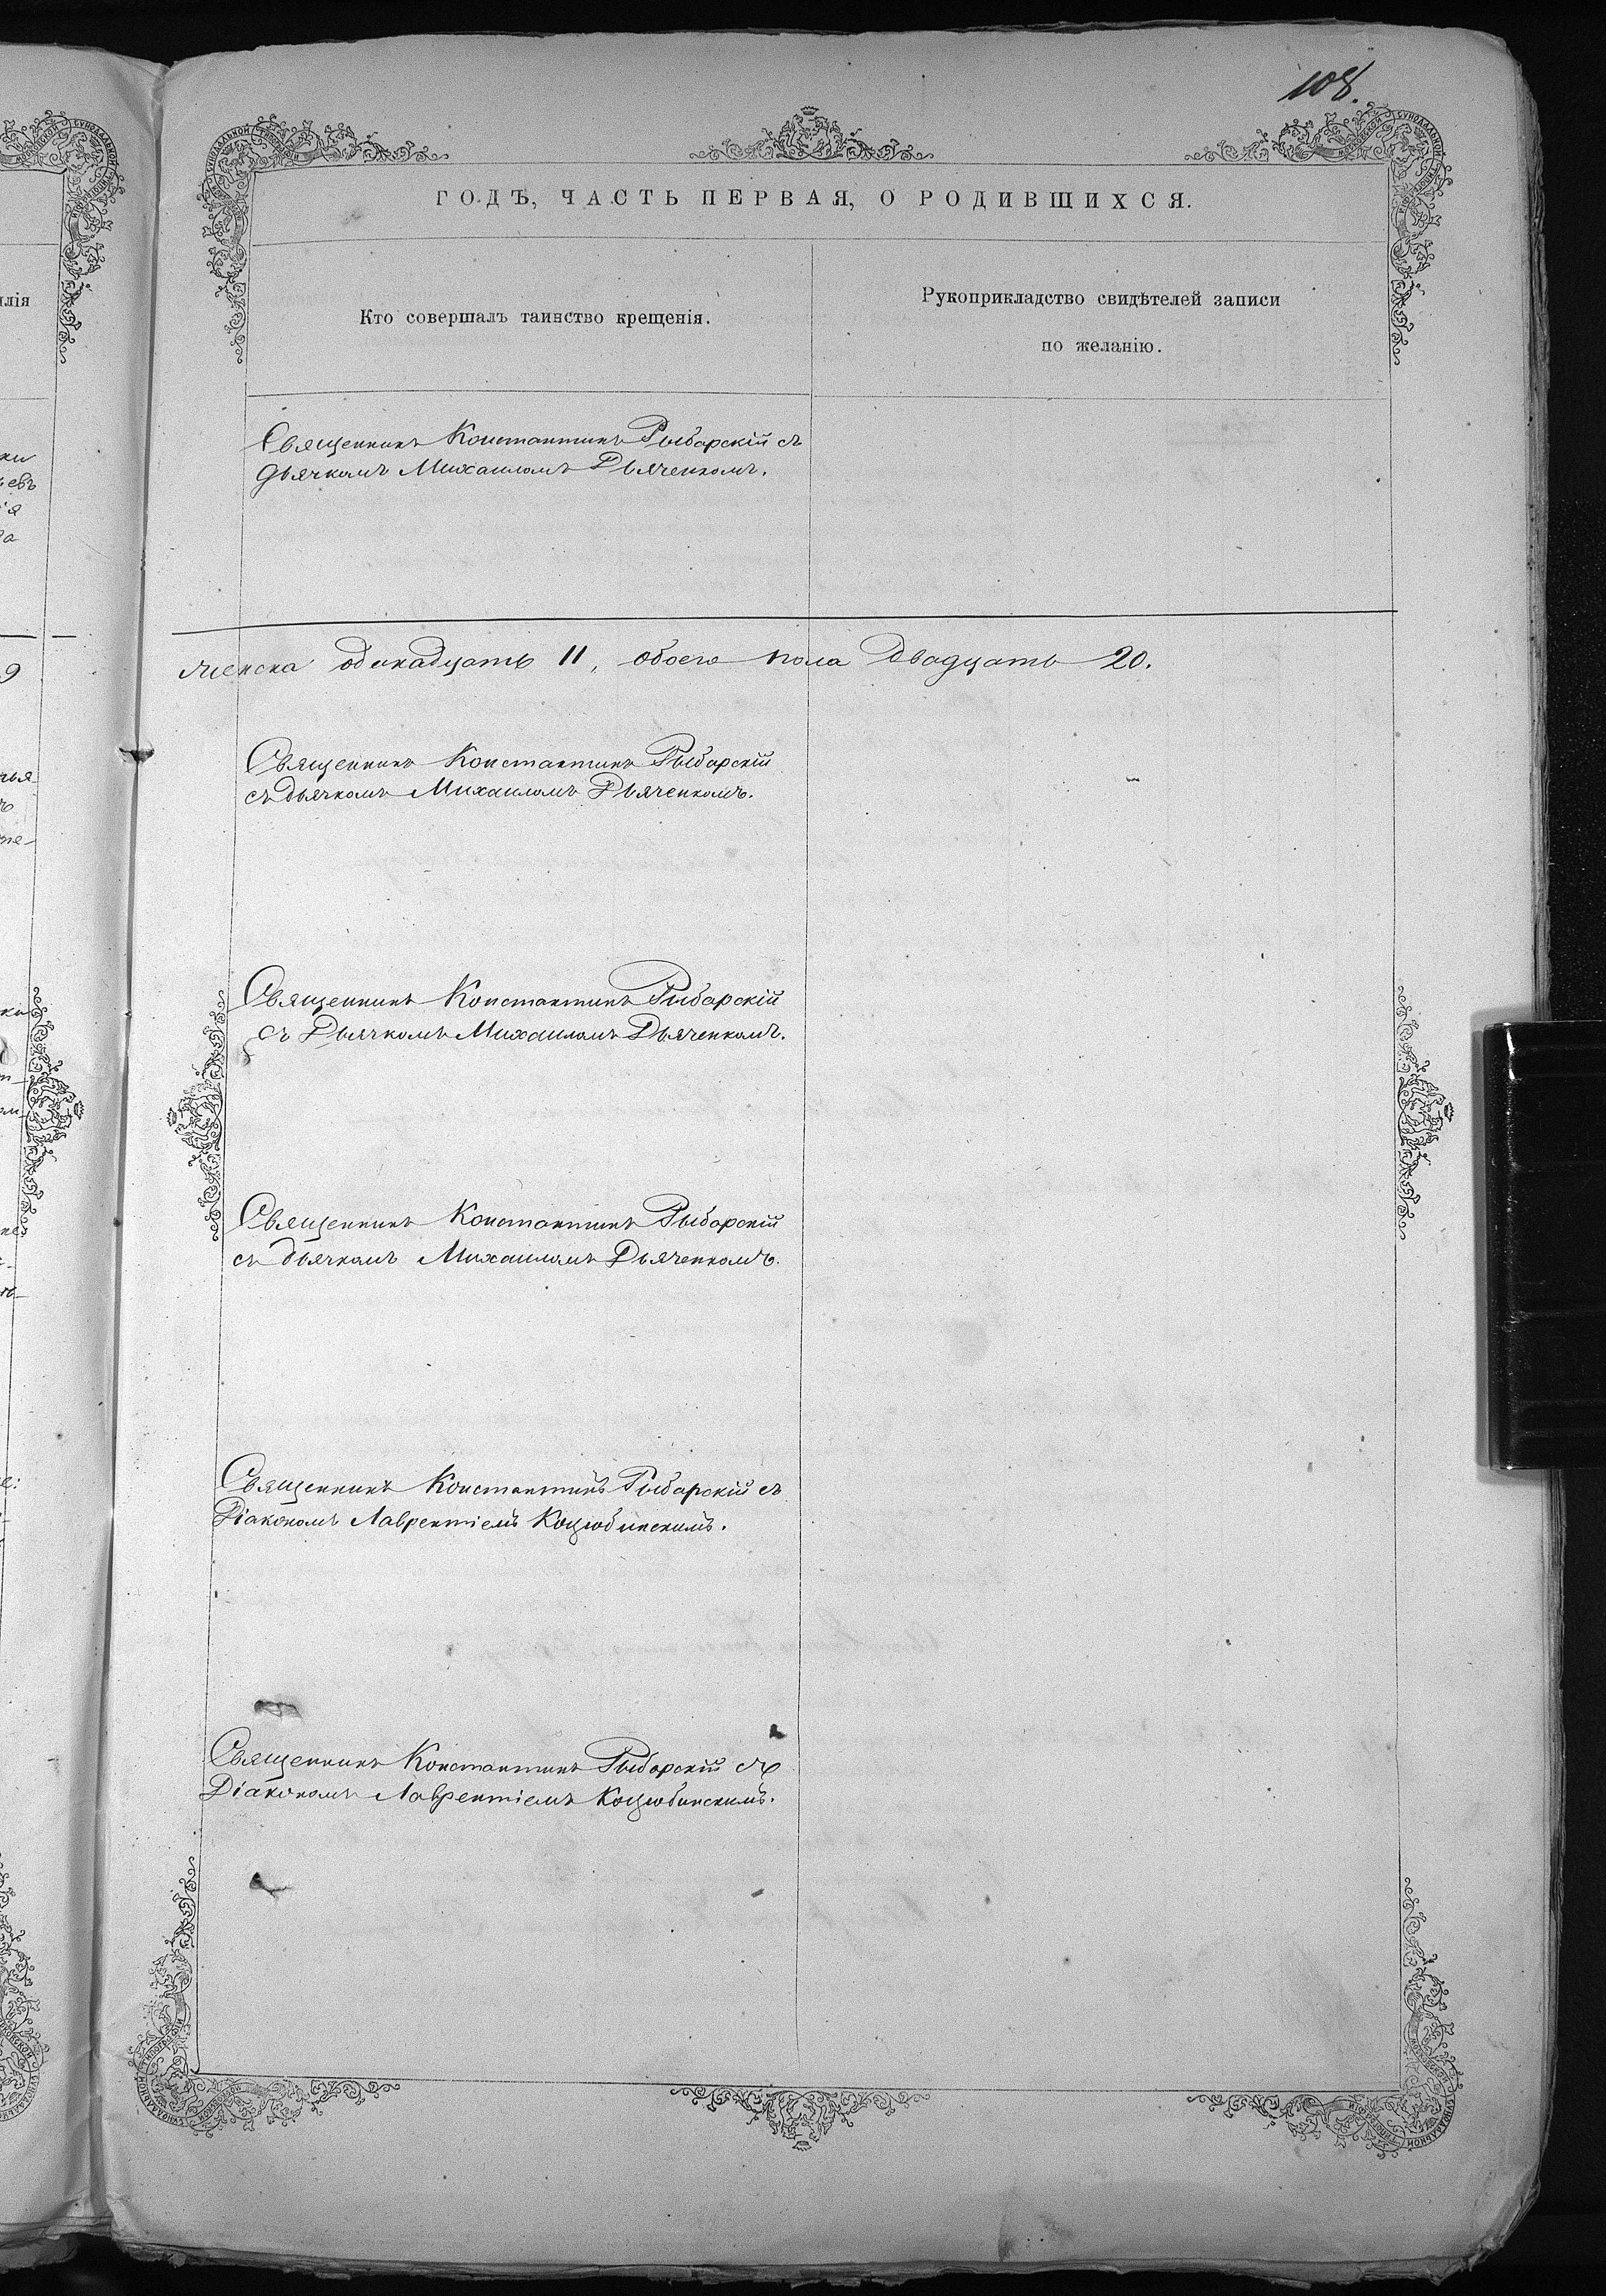 108.
ГОДЪ, ЧАСТЬ ПЕРВАЯ, О РОДИВШИХСЯ.
Кто совершалъ таинство крещенія.
Рукоприкладство свидѣтелей записи
по желанію.
Священникъ Константинъ Рыбарскій съ
дьячкомъ Михаиломъ Дьяченкомъ.
женска одинадцать 11, обоего пола двадцать 20.
Священникъ Константинъ Рыбарскій
съ дьячкомъ Михаиломъ Дьяченкомъ.
Священникъ Константинъ Рыбарскій
съ Дьячкомъ Михаиломъ Дьяченкомъ.
Священникъ Константинъ Рыбарскій
съ дьячкомъ Михаиломъ Дьяченкомъ.
Священникъ Константинъ Рыбарскій съ
Діакономъ Лаврентіемъ Коцюбинскимъ.
Священникъ Константинъ Рыбарскій съ
Діакономъ Лаврентіемъ Коцюбинскимъ.